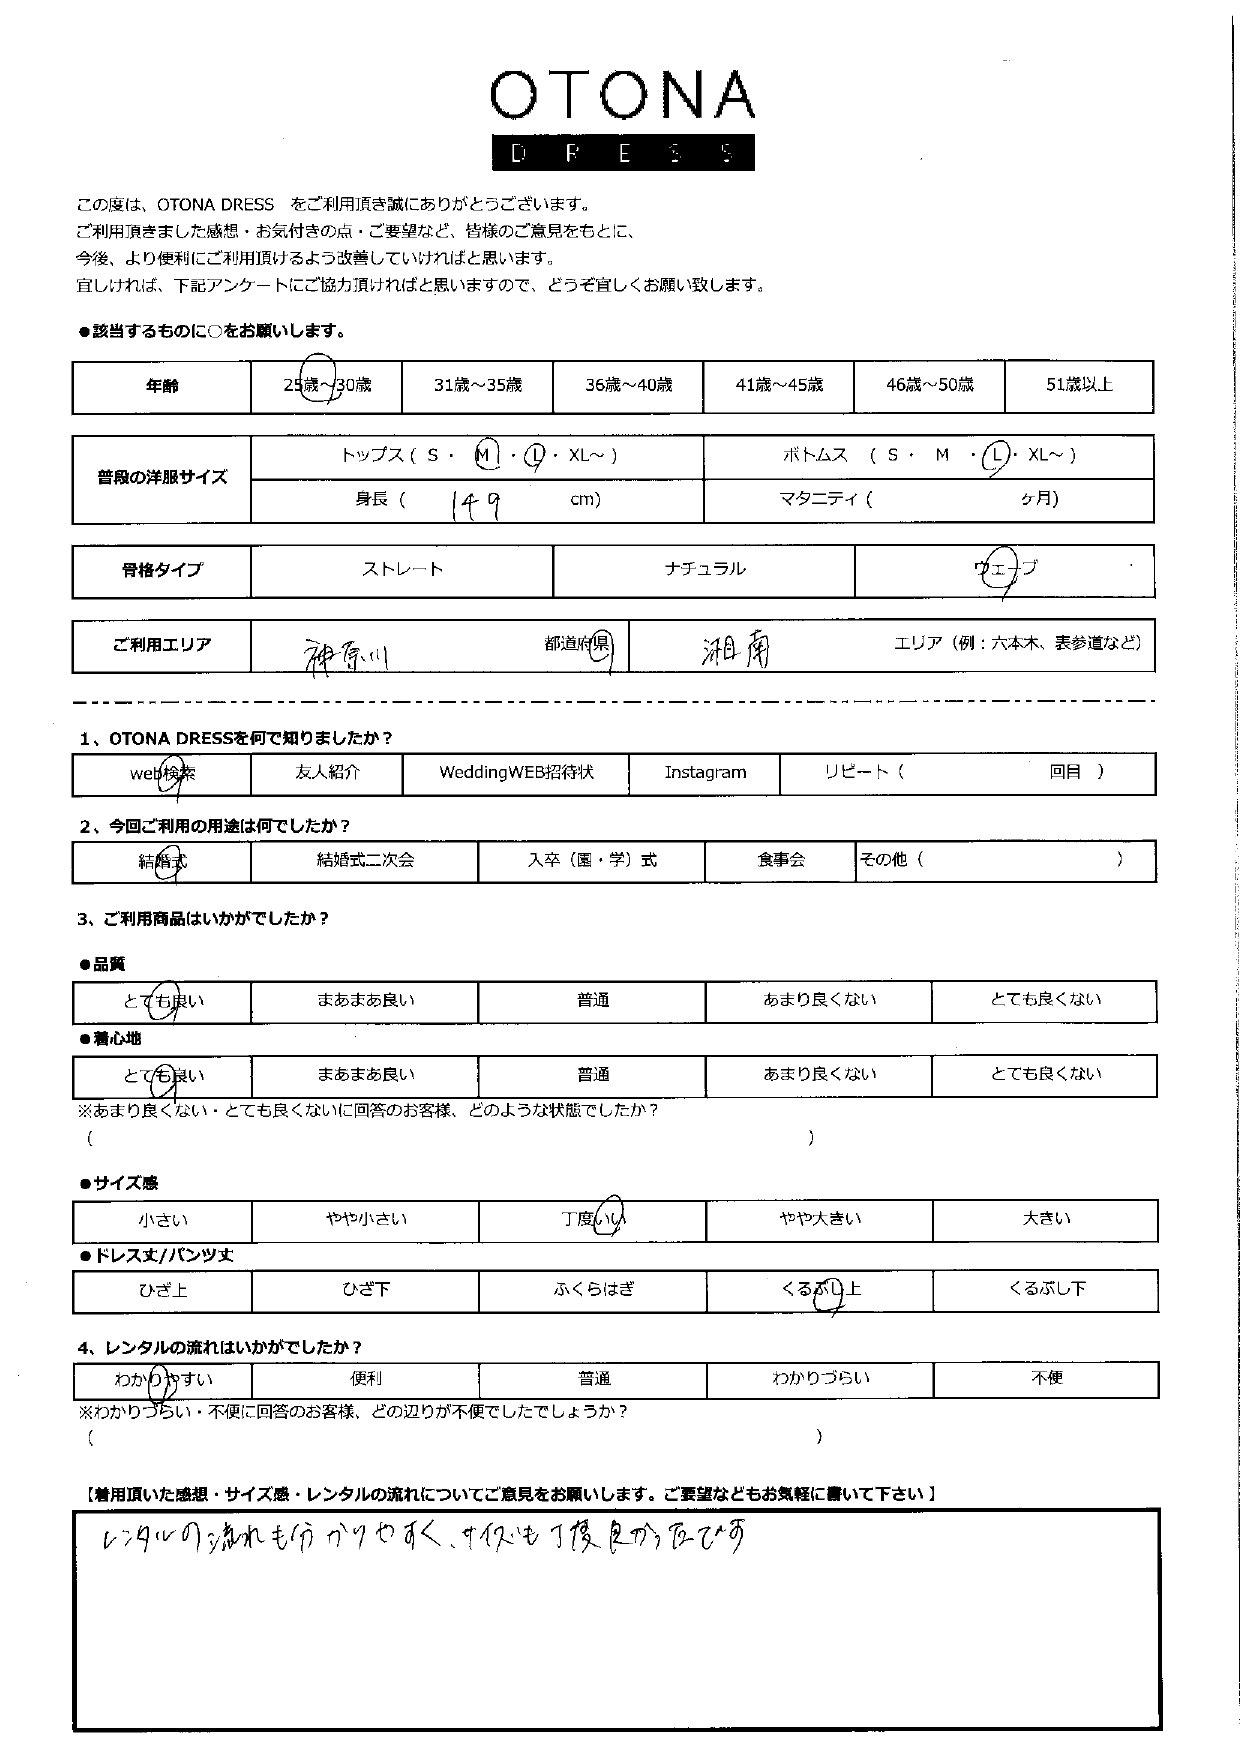 OTONA
DRESS
この度は、OTONA DRESS　をご利用頂き誠にありがとうございます。
ご利用頂きました感想・お気付きの点・ご要望など、皆様のご意見をもとに、
今後、より便利にご利用頂けるよう改善していければと思います。
宜しければ、下記アンケートにご協力頂ければと思いますので、どうぞ宜しくお願い致します。
●該当するものに○をお願いします。
年齢 25歳～30歳 31歳～35歳 36歳～40歳 41歳～45歳 46歳～50歳 51歳以上
普段の洋服サイズ トップス ( S ・ M ・ L ・ XL～ ) ボトムス ( S ・ M ・ L ・ XL～ )
身長 ( 149 cm) マタニティ ( ヶ月)
骨格タイプ ストレート ナチュラル ウェーブ
ご利用エリア 神奈川 都道府県 湘南 エリア（例：六本木、表参道など）
1、OTONA DRESSを何で知りましたか？
web検索 友人紹介 WeddingWEB招待状 Instagram リピート ( 回目 )
2、今回ご利用の用途は何でしたか？
結婚式 結婚式二次会 入卒（園・学）式 食事会 その他 ( )
3、ご利用商品はいかがでしたか？
●品質
とても良い まあまあ良い 普通 あまり良くない とても良くない
●着心地
とても良い まあまあ良い 普通 あまり良くない とても良くない
※あまり良くない・とても良くないに回答のお客様、どのような状態でしたか？
( )
●サイズ感
小さい やや小さい 丁度いい やや大きい 大きい
●ドレス丈/パンツ丈
ひざ上 ひざ下 ふくらはぎ くるぶし上 くるぶし下
4、レンタルの流れはいかがでしたか？
わかりやすい 便利 普通 わかりづらい 不便
※わかりづらい・不便に回答のお客様、どの辺りが不便でしたでしょうか？
( )
【着用頂いた感想・サイズ感・レンタルの流れについてご意見をお願いします。ご要望などもお気軽に書いて下さい】
レンタルの流れも分かりやすく、サイズも丁度良かったです